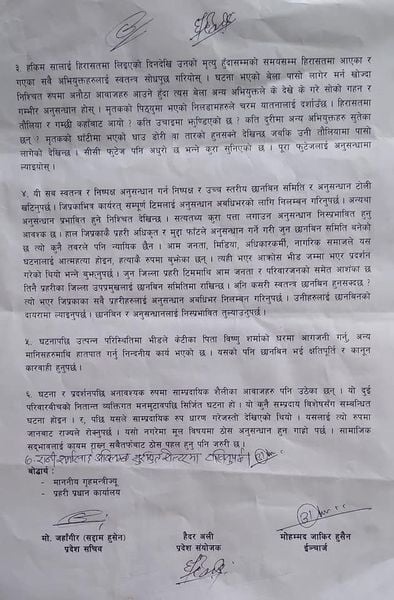 ३. हकिम सालाई हिरासतमा लिइएको दिनदेखि उनको मृत्यु हुँदासम्मको समयसम्म हिरासतमा आएका र
गएका सबै अभियुक्तहरुलाई स्वतन्त्र सोधपुछ गरियोस् । घटना भएको बेला पासो लागेर मर्न खोज्दा
निश्चित रुपमा अनौठा आवाजहरु आउने हुँदा त्यस बेला अन्य अभियुक्तले के देखे के गरे सोको गहन र
गम्भीर अनुसन्धान होस् । मृतकको पिठ्युमा भएको निलडामहरुले चरम यातनालाई दर्शाउँछ । हिरासतमा
तौलिया र गम्छी कहाँबाट आयो ? कति उचाइमा झुण्डिएको छ ? कति दुरीमा अन्य अभियुक्तहरु सुतेका
छन् ? मृतकको घाँटीमा भएको घाउ डोरी वा तारको हुनसक्ने देखिन्छ जबकि उनी तौलियामा पासो
लागेको देखिन्छ । सीसी फुटेज पनि अधुरो छ भन्ने कुरा सुनिएको छ । पूरा फुटेजलाई अनुसन्धामा
ल्याइयोस् ।
४. यी सब स्वतन्त्र र निष्पक्ष अनुसन्धान गर्न निष्पक्ष र उच्च स्तरीय छानबिन समिति र अनुसन्धान टोली
खटिनुपर्छ । जिप्रकाभित्र कार्यरत् सम्पूर्ण टिमलाई अनुसन्धान अबधिभरको लागि निलम्बन गरिनुपर्छ । अन्यथा
अनुसन्धान प्रभावित हुने निश्चित देखिन्छ । सत्यतथ्य कुरा पत्ता लगाउन अनुसन्धान निस्प्रभावित हुनु
आवश्क छ । हाल जिप्रकाकै प्रहरी अधिकृत र मुद्दा फाँटले अनुसन्धान गर्ने गरी जुन छानबिन समिति बनेको
छ त्यो कुनै तवरले पनि न्यायिक छैन । आम जनता, मिडिया, अधिकारकर्मी, नागरिक समाजले यस
घटनालाई आत्महत्या होइन, हत्याकै रुपमा बुझेका छन् । त्यही भएर आक्रोस भीड जम्मा भएर प्रदर्शन
गरेको थियो भन्ने बुझ्नुपर्छ । जुन जिल्ला प्रहरी टिममाथि आम जनता र परिवारजनको समेत आशंका छ
तिनै प्रहरीका जिल्ला उपप्रमुखलाई छानबिन समितिमा राखिन्छ । अनि कसरी स्वतन्त्र छानबिन हुनसक्दछ ?
त्यो भएर जिप्रकाका सबै प्रहरीहरुलाई अनुसन्धान अबधिभर निलम्बन गरिनुपर्छ । उनीहरुलाई छानबिनको
दायरामा ल्याइनुपर्छ । छानबिन र अनुसन्धानलाई निस्प्रभावित तुल्याउनुपर्छ ।
५. घटनापछि उत्पन्न परिस्थितिमा भीडले केटीका पिता विष्णु शर्माको घरमा आगजनी गर्नु, अन्य
मानिसहरुमाथि हातपात गर्नु निन्दनीय कार्य भएको छ । यसको पनि छानबिन भई क्षतिपूर्ति र कानून
कारवाही हुनुपर्छ ।
६. घटना र प्रदर्शनपछि अनावश्यक रुपमा साम्प्रदायिक शैलीका आवाजहरु पनि उठेका छन् । यो दुई
परिवारबीचको नितान्त व्यक्तिगत मनमुटावपछि सिर्जित घटना हो । यो कुनै सम्प्रदाय विशेषसँग सम्बन्धित
घटना होइन । र, पछि यसले साम्प्रदायिक रुप धारण गरेजस्तो देखिएको थियो । यसलाई त्यो रुपमा
जानबाट राज्यले रोक्नुपर्छ । यसो नगरेमा मूल विषयमा ठोस अनुसन्धान हुन गाह्रो पर्छ । सामाजिक
सद्भावलाई कायम राख्न सबैतर्फबाट ठोस पहल हुनु पनि जरुरी छ ।
बोधार्थ :
- माननीय गृहमन्त्रीज्यू
- प्रहरी प्रधान कार्यालय
मो. जहाँगीर (सद्दाम हुसेन)
प्रदेश सचिव
हैदर अली
प्रदेश संयोजक
मोहम्मद जाकिर हुसैन
ईन्चार्ज